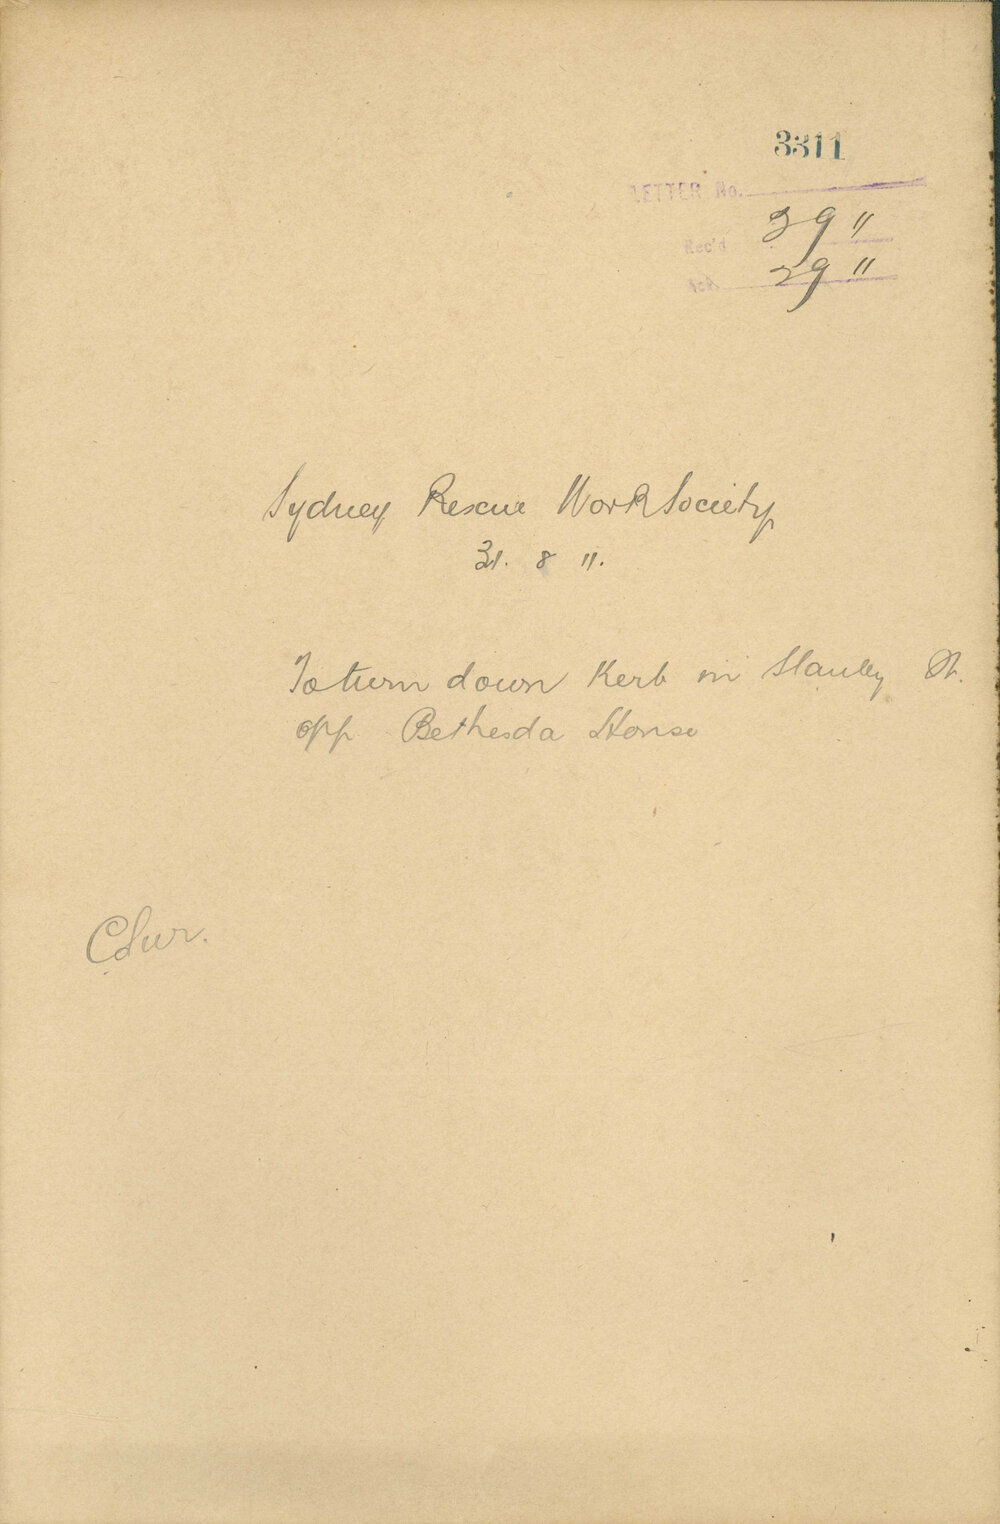 3311
LETTER No.
Rec'd 2 9 11
Ack. 2 9 11
Sydney Rescue Work Society
31. 8 11.
To turn down Kerb in Stanley St.
opp Bethesda House
C Sur.